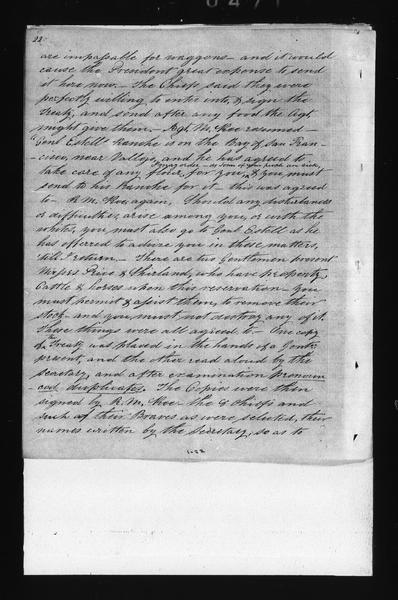 22
are impassable for waggons — and it would
cause the President great expense to send
it here now — The Chiefs said they were
perfectly willing to enter into, & sign the
Treaty, and send after any food the Agt.
might give them. — Agt. McKee resumed —
"Genl Estell's Ranche is on the Bay of San Fran-
cisco, near Vallejo, and he has agreed to
take care of any flour, for you, & you must
send to his Ranche for it — this was agreed
to — R. McKee again, Should any disturbances
or difficulties, arise among you, or with the
whites, you must also go to Genl Estell as he
has offered to advise you in those matters,
'till I return — There are two Gentlemen present
Messrs. and who have property,
Cattle & horses within this reservation — You
must permit & assist them, to remove their
stock — and you must not destroy any of it.
These things were all agreed to — One copy
of the Treaty was placed in the hands of a Gentn
present, and the other read aloud by the
Secretary, and after examination pronoun
ced duplicates. The Copies were then
signed by R. McKee the 8 Chiefs and
such of their Braves as were selected, their
names written by the Secretary, so as to